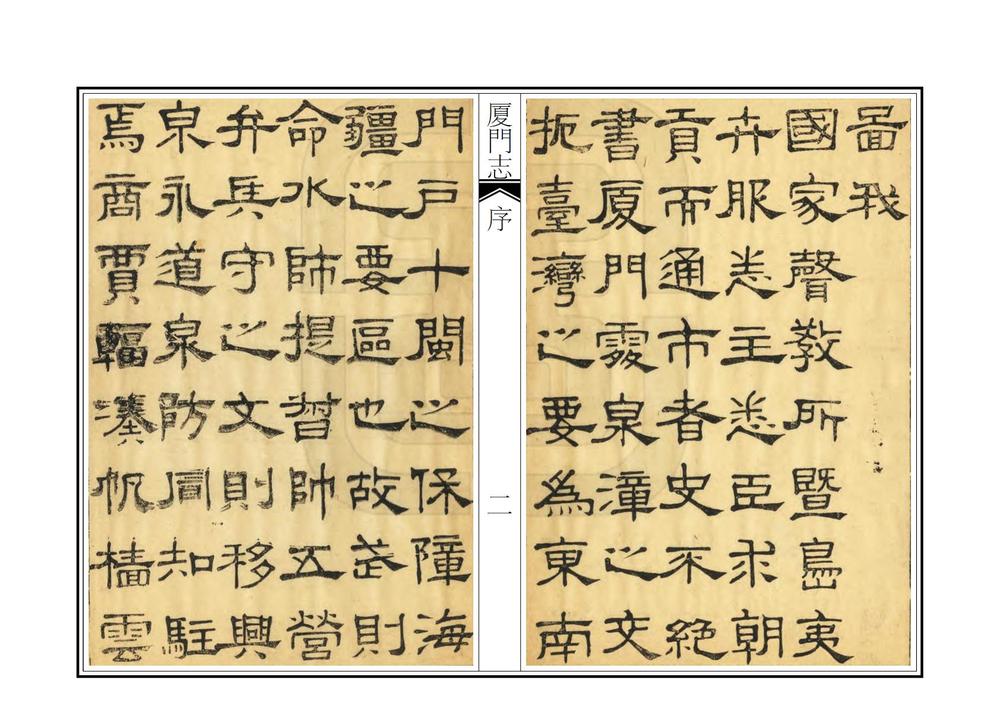 啚我
國家聲教所暨島夷
卉服悉主悉臣來朝
貢而通市者史不絕
書厦門處泉漳之交
扼臺灣之要為東南
厦門志
序
二
門戶十閩之保障海
疆之要區也故武則
命水師提督帥五營
弁兵守之文則移興
泉永道泉防同知駐
焉商賈輻湊帆檣雲